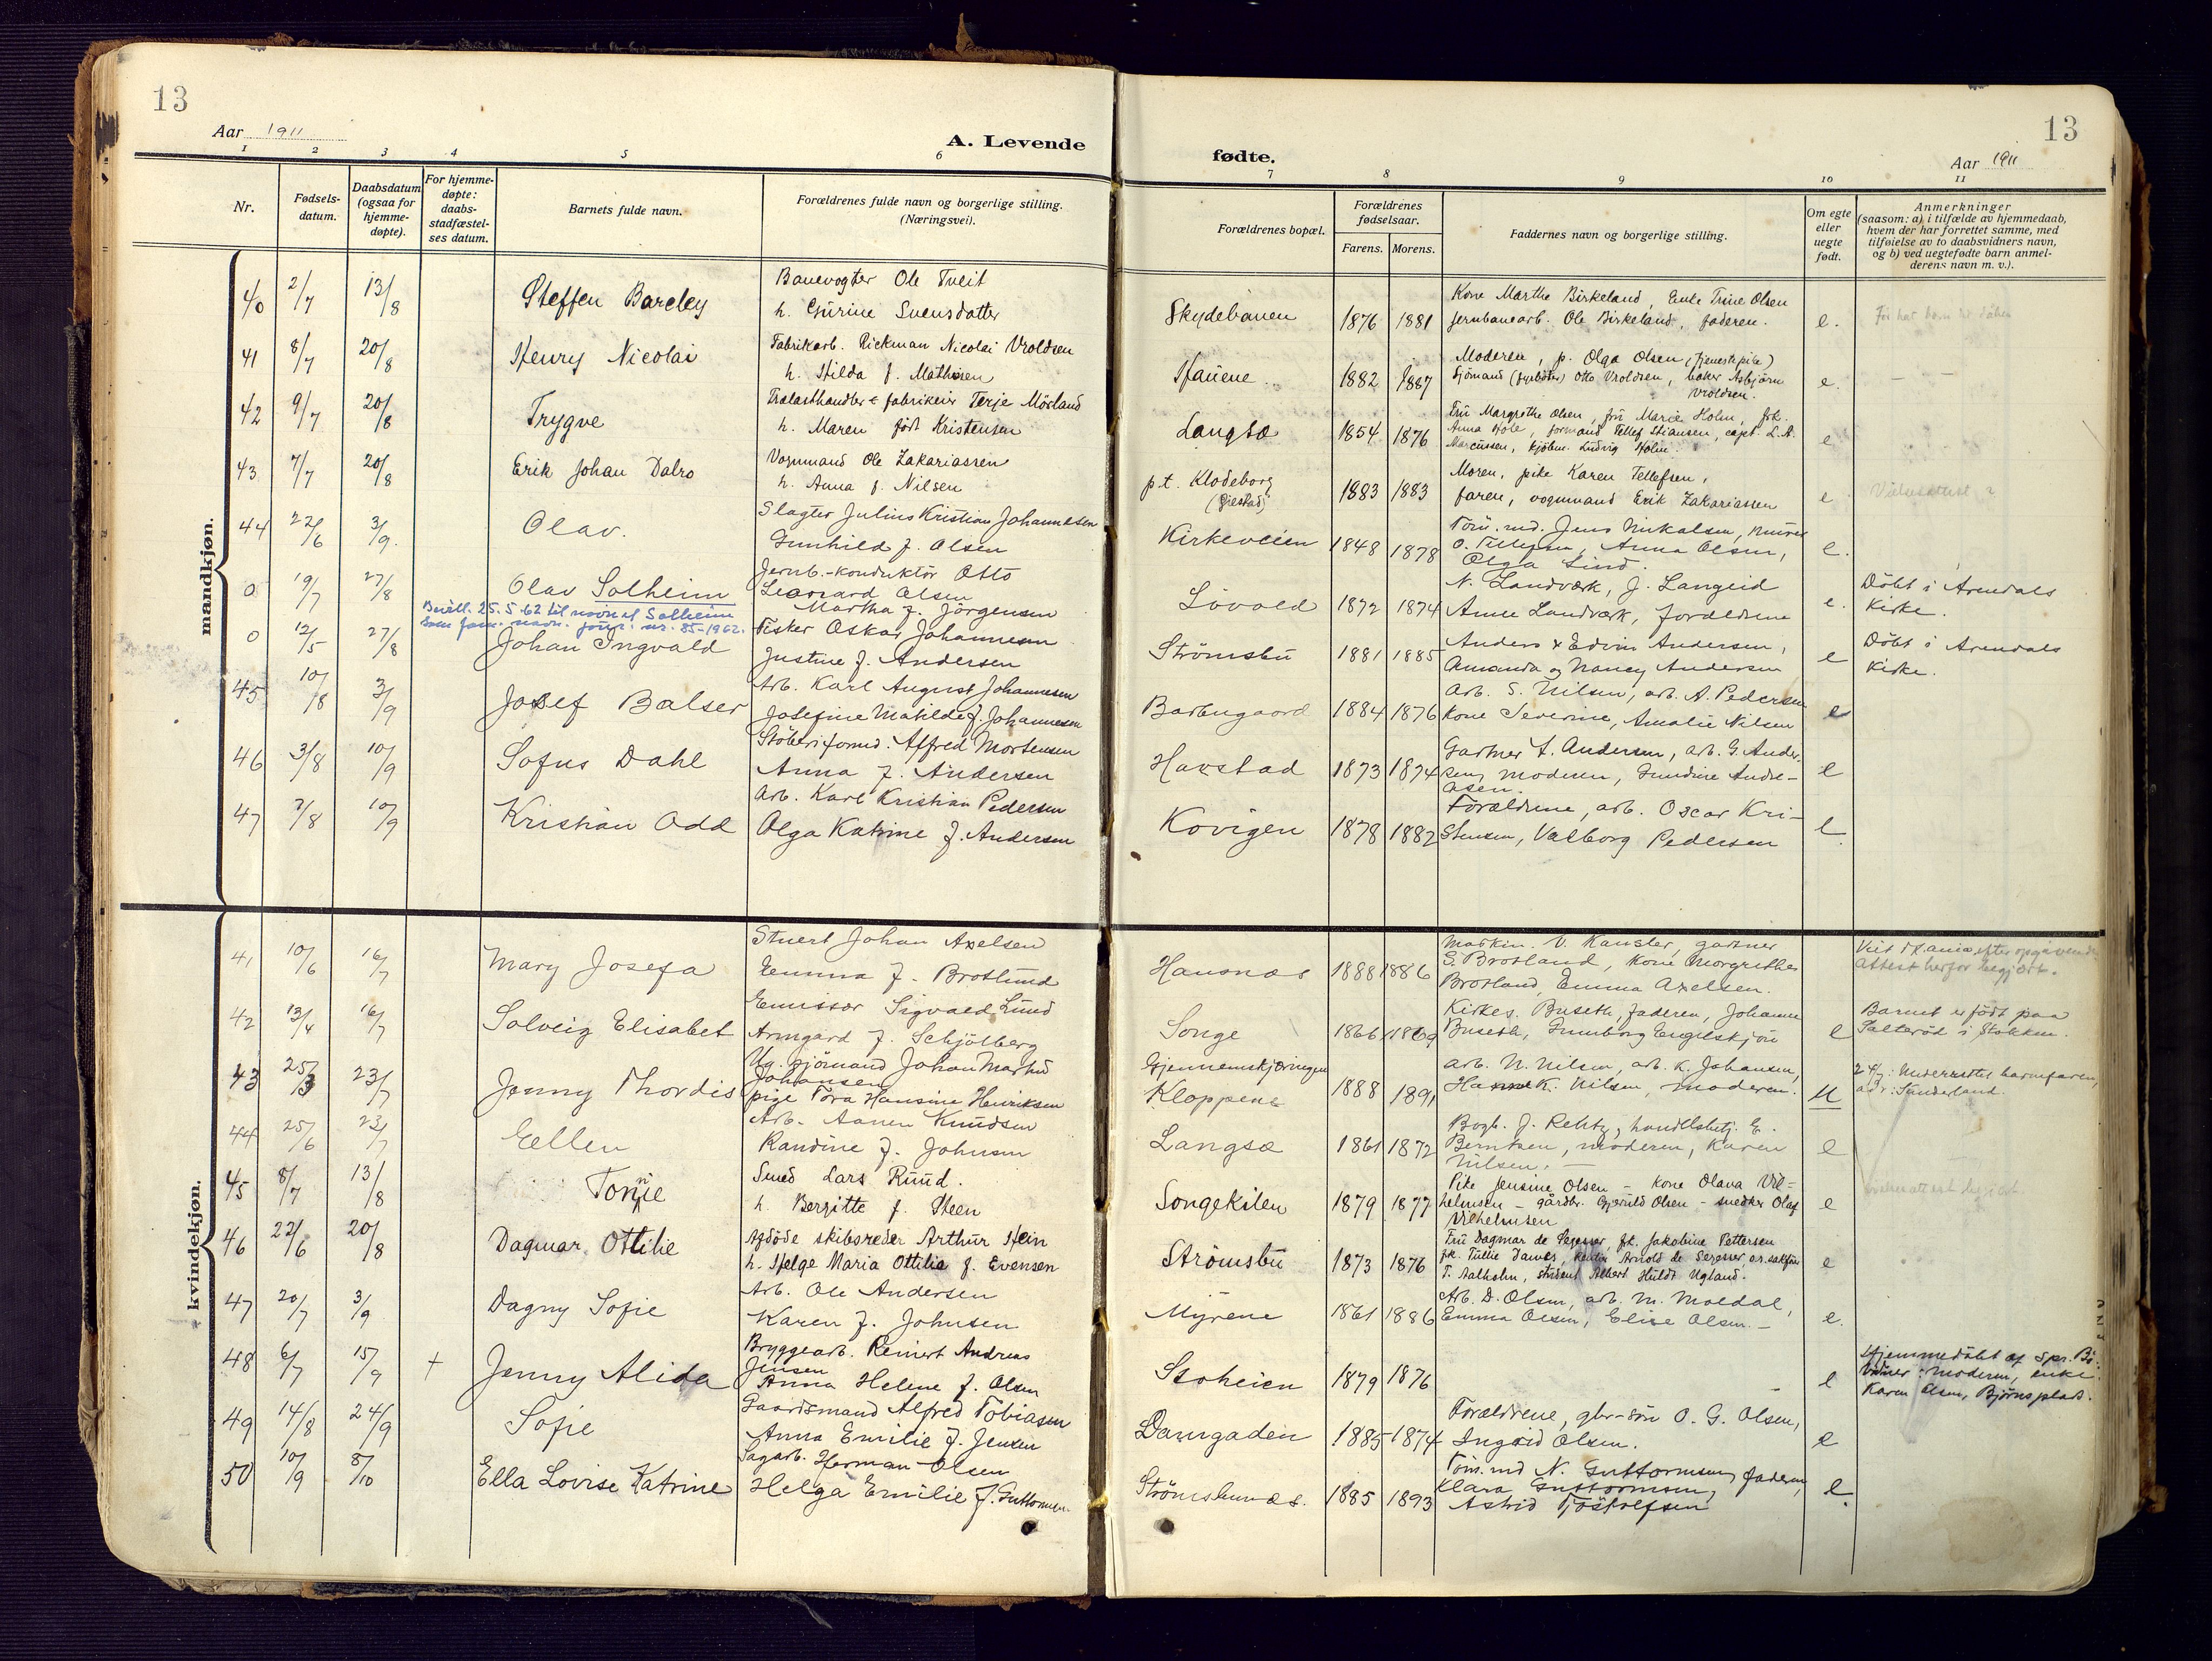 13
Aar 1911
A. Levende
1 2 3 4 5 6
Nr.
Fødsels-
datum.
Daabsdatum
(ogsaa for
hjemme-
døpte).
For hjemme-
døpte:
daabs-
stadfæstel-
ses datum.
Barnets fulde navn.
Forældrenes fulde navn og borgerlige stilling.
(Næringsvei).
13
fødte.
Aar 1911
7 8 9 10 11
Forældrenes bopæl.
Forældrenes
fødselsaar.
Farens. Morens.
Faddernes navn og borgerlige stilling.
Om egte
eller
uegte
født.
Anmerkninger
(saasom: a) i tilfælde av hjemmedaab,
hvem der har forrettet samme, med
tilføielse av to daabsvidners navn,
og b) ved uegtefødte barn anmel-
derens navn m. v.).
mandkjøn.
40 2/7 13/8 Steffen Barcley
Banevogter Ole Tveit
h. Gurine Svensdatter
Skydebanen 1876 1881
Kone Marthe Birkeland, Enke Trine Olsen
jernbanearb. Ole Birkeland, faderen.
e.
41 8/7 20/8 Henry Nicolai
Fabrikarb. Rickman Nicolai Vroldsen
h. Hilda f. Mathisen
Hauene 1882 1887
Moderen, p. Olga Olsen (tjenestepike)
Sjömand Otto Vroldsen, baker Asbjörn
Vroldsen.
e.
42 9/7 20/8 Trygve
Trælasthandler & fabrikeier Terje Mörland
h. Maren född Kristensen
Langsæ 1854 1876
Fru Margrethe Olsen, fru Marie Holm, frk.
Anna Hole, formand Tellef Stiansen, capt. L. A.
Marcussen, kjöbm. Ludvig Holm.
e
43 7/7 20/8 Erik Johan Dalro
Vognmand Ole Zakariassen
h. Anna f. Nilsen
p.t. Klodeborg
(Öiestad)
1883 1883
Moren, pike Karen Tellefsen,
faren, vognmand Erik Zakariassen
e.
44 22/6 3/9. Olav.
Slagter Julius Kristian Johannesen
Gunhild f. Olsen
Kirkeveien 1848 1878
Töm. md. Jens Nikolsen, murer
O. Tellefsen, Anna Olsen,
Olga Lind.
e.
0 19/7 27/8 Olav Solheim
Jernb.-konduktör Otto
Leonard Olsen
Martha f. Jörgensen
Bevill. 25.5.62 til navnet Solheim
som fam. navn. jour. nr. 85-1962.
Lövold 1872 1874
N. Landværk, J. Langeid
Anne Landværk, foreldrene
e.
Döbt i Arendals
Kirke.
0 12/5 27/8 Johan Ingvald
Fisker Oskar Johannesen
Justine f. Andersen
Strömsbu 1881 1885
Anders & Edvin Andersen,
Amanda og Nancy Andersen
e
Döbt i Arendals
Kirke.
45 10/8 3/9 Josef Balser
Arb. Karl August Johannesen
Josefine Matilde f. Johannesen
Barbugaard 1884 1876
Arb. S. Nilsen, arb. A. Pedersen
Kone Severine, Amalie Nilsen
e
46 3/8 10/9 Sofus Dahl
Stöberiformd. Alfred Mortensen
Anna f. Andersen
Havstad 1873 1874
Gartner A. Andersen, arb. G. Ander-
sen, moderen, Gundine Andre-
asen.
e
47 7/8 10/9 Kristian Odd
Arb. Karl Kristian Pedersen
Olga Katrine f. Andersen
Kovigen 1878 1882
Forældrene, arb. Oscar Kri-
stensen, Valborg Pedersen
e.
kvindekjøn.
41 10/6 16/7 Mary Josefa
Stuert Johan Axelsen
Emma f. Brotlund
Hausnæs 1888 1886
Maskin. V. Kansler, gartner
S. Brotland, Kone Morgrethe
Brotland, Emma Axelsen.
42 13/4 16/7 Solveig Elisabet
Emissær Sigvald Lund
Armgard f. Schjölberg
Songe 1866 1869
Kirkes. Buseth, faderen, Johanne
Buseth, Gunnborg Engelskjön
e
Barnet er födt paa
Salteröd i Stokken.
43 25/3 23/7 Jenny Thordis
Ug. sjömand Johan Martin
Johansen
pige Tora Hansine Henriksen
Gjennemskjæringen
Kloppene
1888 1891
arb. N. Nilsen, arb. K. Johansen,
Hanne K. Nilsen, moderen.
U
24/7: Underrettet barnefaren,
adr: Sunderland.
44 25/6 23/7 Ellen
Arb. Aanen Knudsen
Randine f. Johnsen
Langsæ 1861 1872
Bogh. J. Rehtz, handelsbetj. E.
Berntsen, moderen, Karen
Nilsen.
e
45 8/7 13/8 Tonnie
Smed Lars Ruud.
h. Bergitte f. Steen
Songekilen 1879 1877
Pike Jensine Olsen – Kone Olava Vil-
helmsen – gårdbr. Gjeruld Olsen – snedker Olaf
Vilhelmsen
e
46 22/6 20/8 Dagmar Ottilie
Afdöde skibsreder Arthur Hein
h. Helga Maria Ottilia f. Evensen
Strömsbu 1873 1876
Fru Dagmar de Seesser, frk. Jakobine Pettersen
frk. Tullie Dawes, Arnold de Seesser, or. sakfører
T. Aalholm, student Albert Huldt Ugland.
e
47 20/7 3/9 Dagny Sofie
Arb. Ole Andersen
Karen f. Johnsen
Myrene 1861 1886
Arb. D. Olsen, arb. M. Moldal,
Emma Olsen, Elise Olsen. –
e.
48 6/7 15/9 + Jenny Alida
Bryggearb. Reinert Andreas
Jensen
Anna Helene f. Olsen
Stoheien 1879 1876
e
Hjemmedöbt af spr. Bö.
Vidner: Moderen, enke
Karen Olsen, Björnsplads.
49 14/8 24/9 Sofie
Gaardsmand Alfred Tobiassen
Anna Emilie f. Jensen
Damgaden 1885 1874
Forældrene, gbr-sön O. G. Olsen,
Ingrid Olsen.
e
50 10/9 8/10 Ella Lovise Katrine
Sagarb. Herman Olsen
Helga Emilie f. Guttormsen
Strömsbunæs. 1885 1893
Töm. md N. Guttormsen, faderen,
Klara Guttormsen,
Astrid Fjöstolfsen
e.